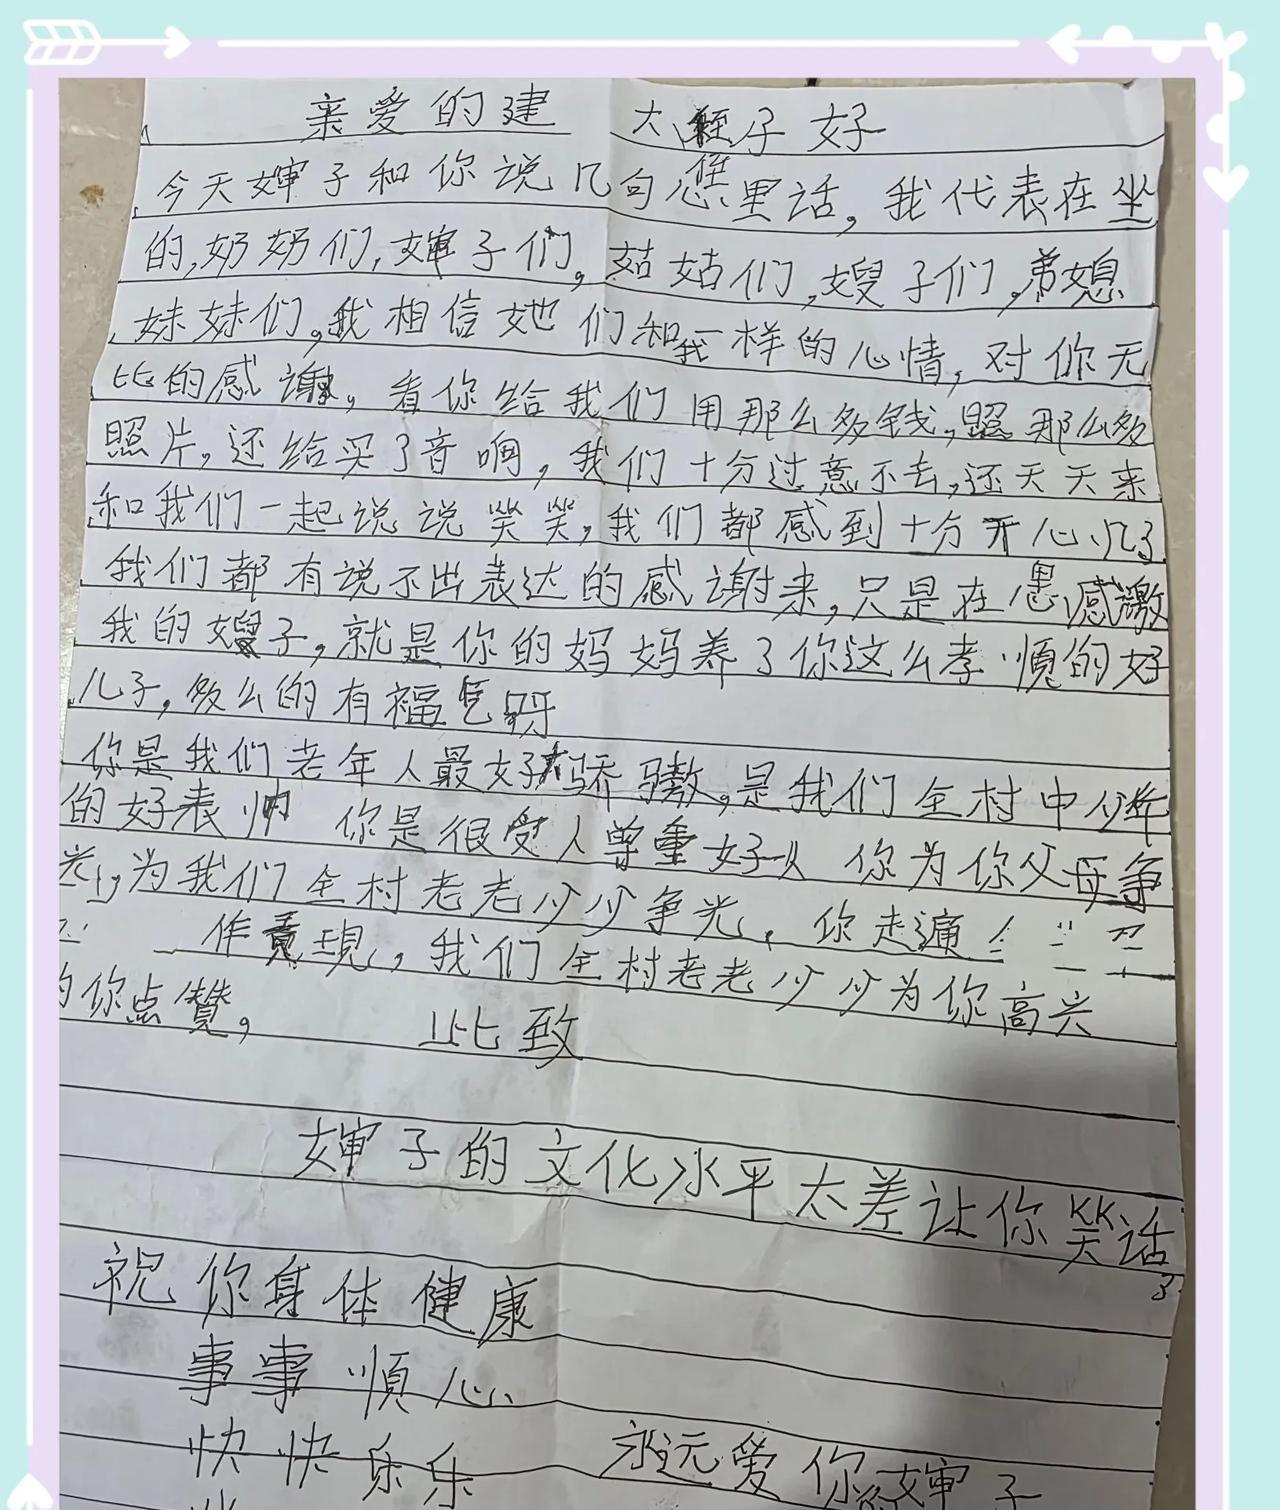 亲爱的建 大侄子好
今天婶子和你说几句心里话，我代表在坐
的，奶奶们，婶子们，姑姑们，嫂子们，弟媳
妹妹们，我相信她们和我一样的心情，对你无
比的感谢，看你给我们用那么多钱，照那么多
照片，还给买了音响，我们十分过意不去，还天天来
和我们一起说说笑笑，我们都感到十分开心，几了
我们都有说不出表达的感谢来，只是在 感激
我的嫂子，就是你的妈妈养了你这么孝顺的好
儿子，多么的有福气呀
你是我们老年人最好骄傲，是我们全村中少年
的好表帅 你是很受人尊重好 你为你父母争
光，为我们全村老老少少争光，你走遍
作 现，我们全村老老少少为你高兴
的你点赞， 此致
婶子的文化水平太差让你笑话
了
祝你身体健康
事事顺心
快快乐乐 永远爱你 婶子